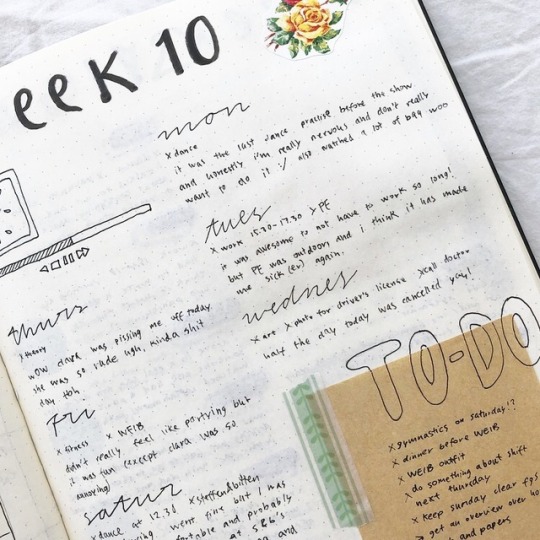 eek 10
mon
x dance
it was the last dance practise before the show
and honestly i'm really nervous and don't really
want to do it :/ also watched a lot of b99 woo
tues
x work 15.30-17.30 > PE
it was awesome to not have to work so long!
but PE was outdoors and i think it has made
me sick (er) again.
wednes
x art x photo for driver's license x call doctor
half the day today was cancelled yay!
thurs
x theory
wow clara was pissing me off today
she was so rude ugh, kinda shit
day tbh.
fri
x fitness x WEIB
didn't really feel like partying but
it was fun (except clara was so
annoying)
satur
x dance at 12.30 x steffen&otten
went fine but i was
and probably
at s&b's
and
TO-DO
x gymnastics on saturday!?
x dinner before WEIB
x WEIB outfit
x do something about shift
next thursday
x keep sunday clear
> get an overview over
and papers